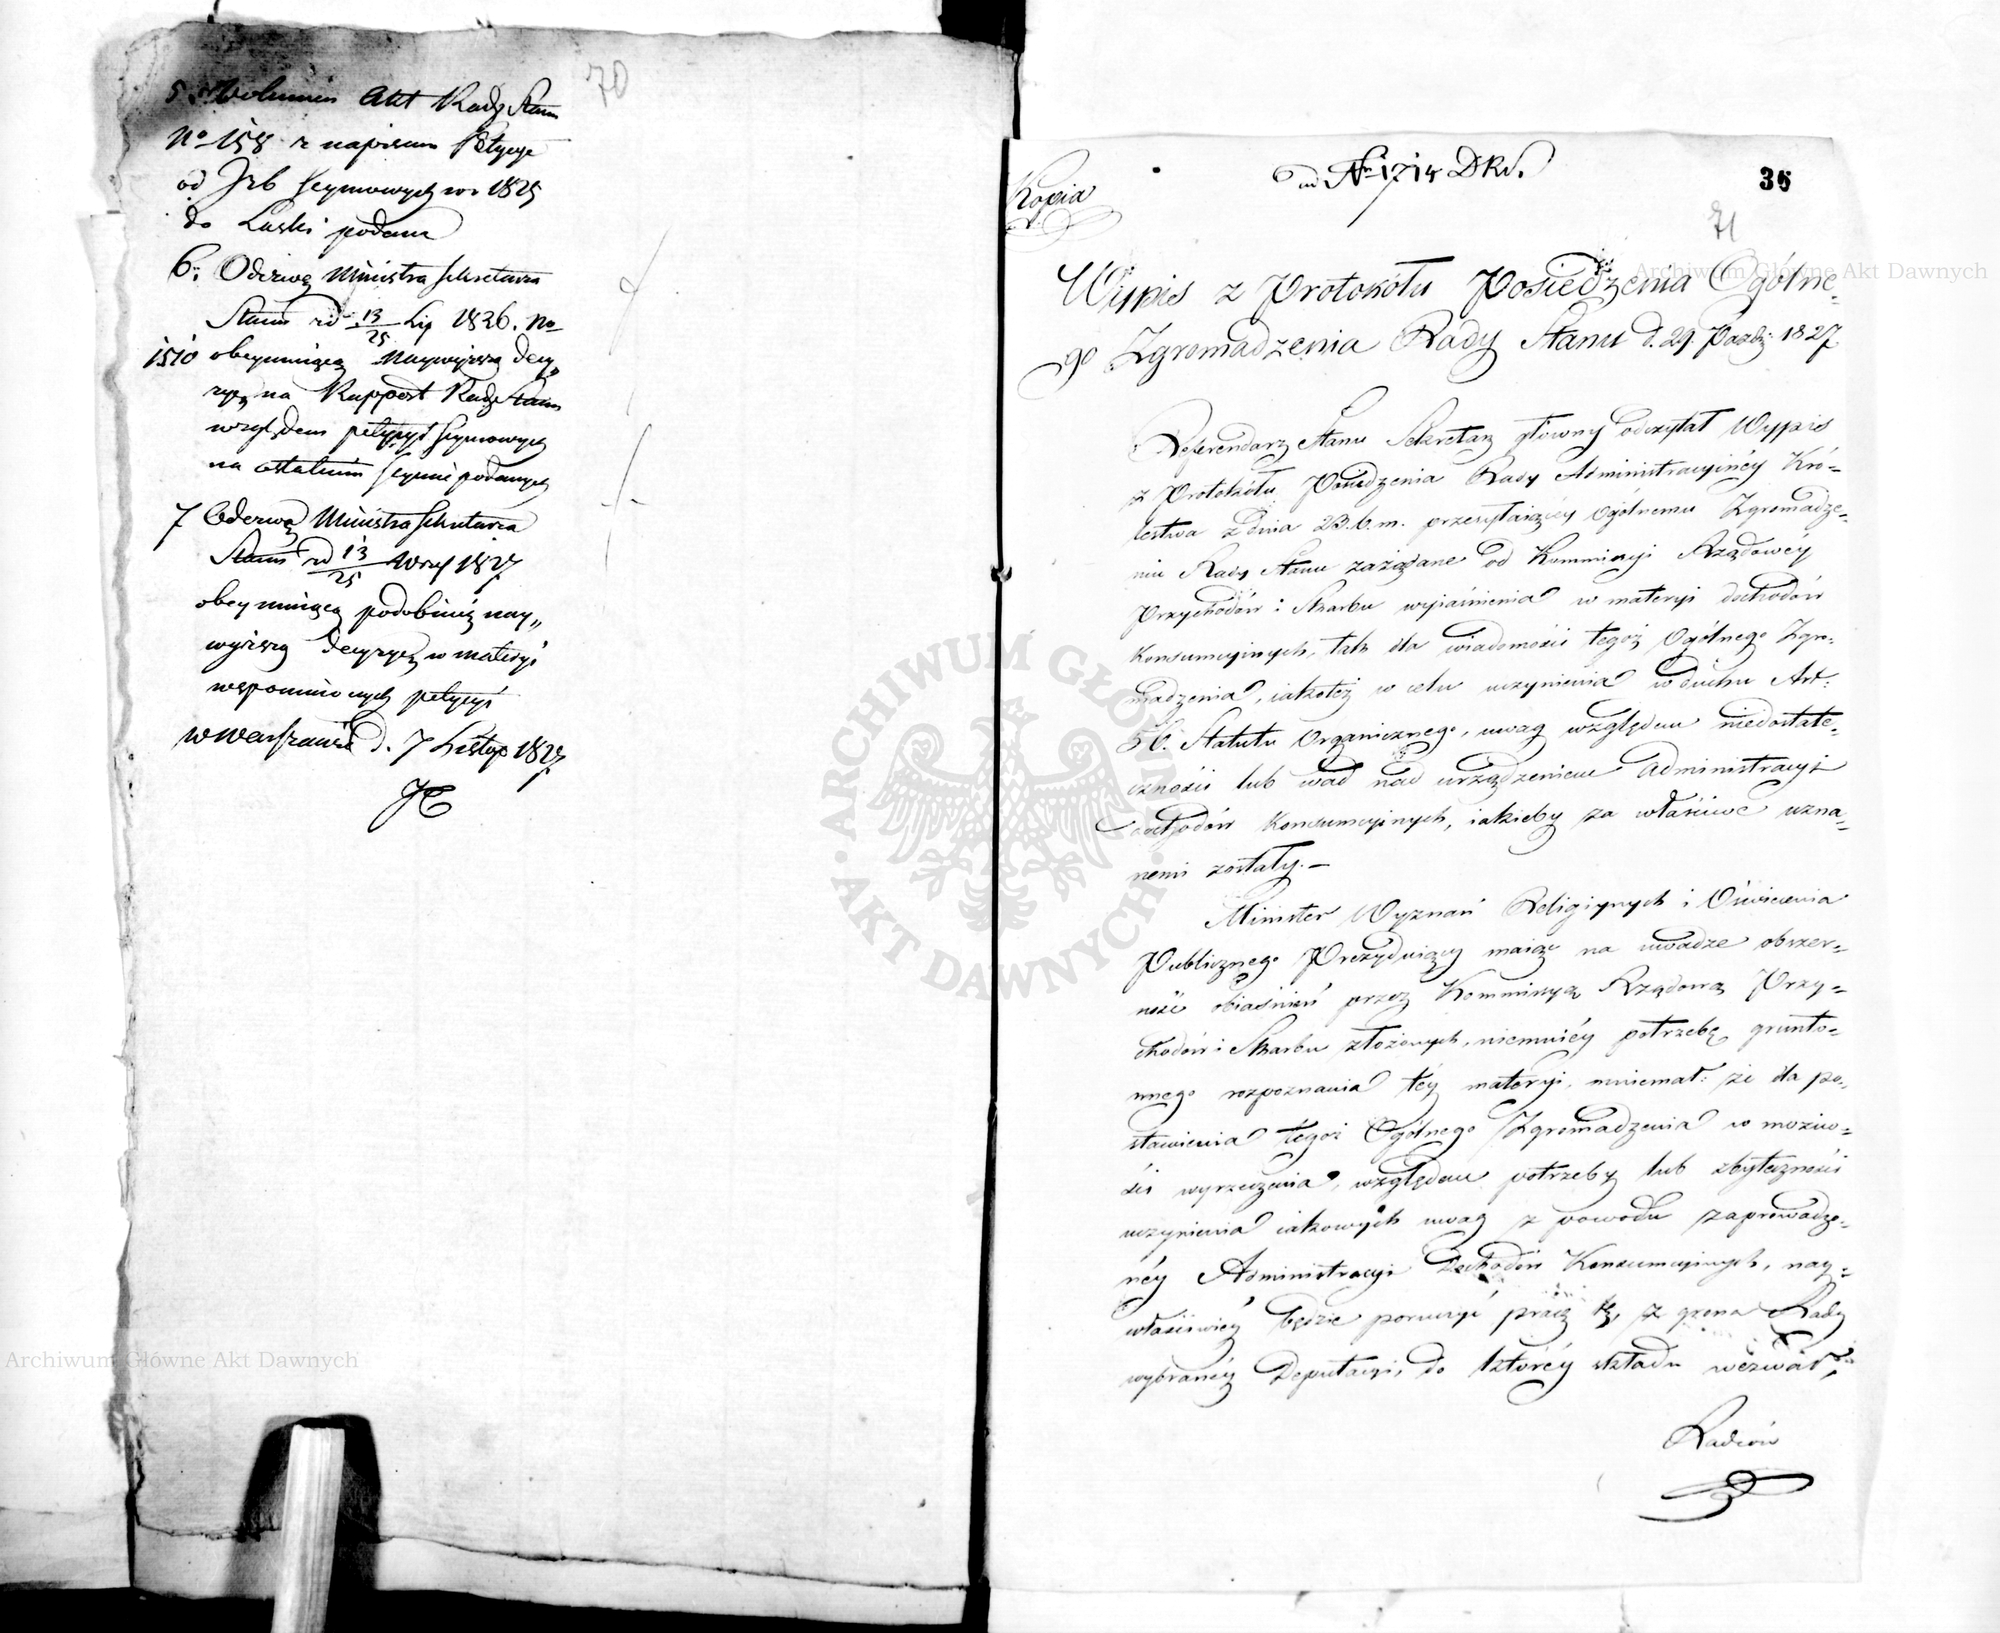 70
5. Wolumin Akt Rady Stanu
No 158 z napisem Petycye
od Izb Seymowych w r 1825
do Laski podane
6. Odezwę Ministra Sekretarza
Stanu z d 13/25 Lip 1826. No
1510 obeymuiącą Naywyższą decy„
zyę na Rapport Rady Stanu
względem petycyi Seymowych
na ostatnim Seymie podanych
7 Odezwę Ministra Sekretarza
Stanu z d 13/25 Wrześ 1827
obeymuiącą podobnież nay„
wyższą decyzyę w materyi
wspomnionych petycyi
w Warszawie d. 7 Listop 1827
Kopia
ad No 1714 DKS.
36
71
Wypis z Protokółu Posiedzenia Ogólne=
go Zgromadzenia Rady Stanu d. 29. Paźdz: 1827
Referendarz Stanu Sekretarz główny odczytał Wypis
z Protokółu Posiedzenia Rady Administracyinéy Kró=
lestwa z dnia 23. b. m. przesyłaiącéy Ogólnemu Zgromadze=
niu Rady Stanu zażądane od Kommissyi Rządowéy
Przychodów i Skarbu wyiaśnienia w materyi dochodów
Konsumcyinych, tak dla wiadomości tegoż Ogólnego Zgro=
madzenia, iakoteż w celu uczynienia w duchu Art:
56. Statutu Organicznego, uwag względem niedostate=
czności lub wad nad urządzeniem Administracyi
dochodów Konsumcyinych, iakieby za właściwe uzna=
nemi zostały. —
Minister Wyznań Religiynych i Oświecenia
Publicznego Prezyduiący maiąc na uwadze obszer=
ność obiaśnień przez Kommissyą Rządową Przy=
chodów i Skarbu złożonych, niemniéy potrzebę grunto=
wnego rozpoznania téy materyi, mniemał: że dla po=
stawienia tegoż Ogólnego Zgromadzenia w możno=
ści wyrzeczenia, względem potrzeby lub zbyteczności
uczynienia iakowych uwag z powodu zaprowadzo=
néy Administracyi Dochodów Konsumcyinych, nay=
właściwiéy będzie poruczyć pracę tę, z grona Rady
wybranéy Deputacyi, do któréy składu wezwał,
Radców
Archiwum Główne Akt Dawnych
Archiwum Główne Akt Dawnych
ARCHIWUM GŁÓWNE AKT DAWNYCH